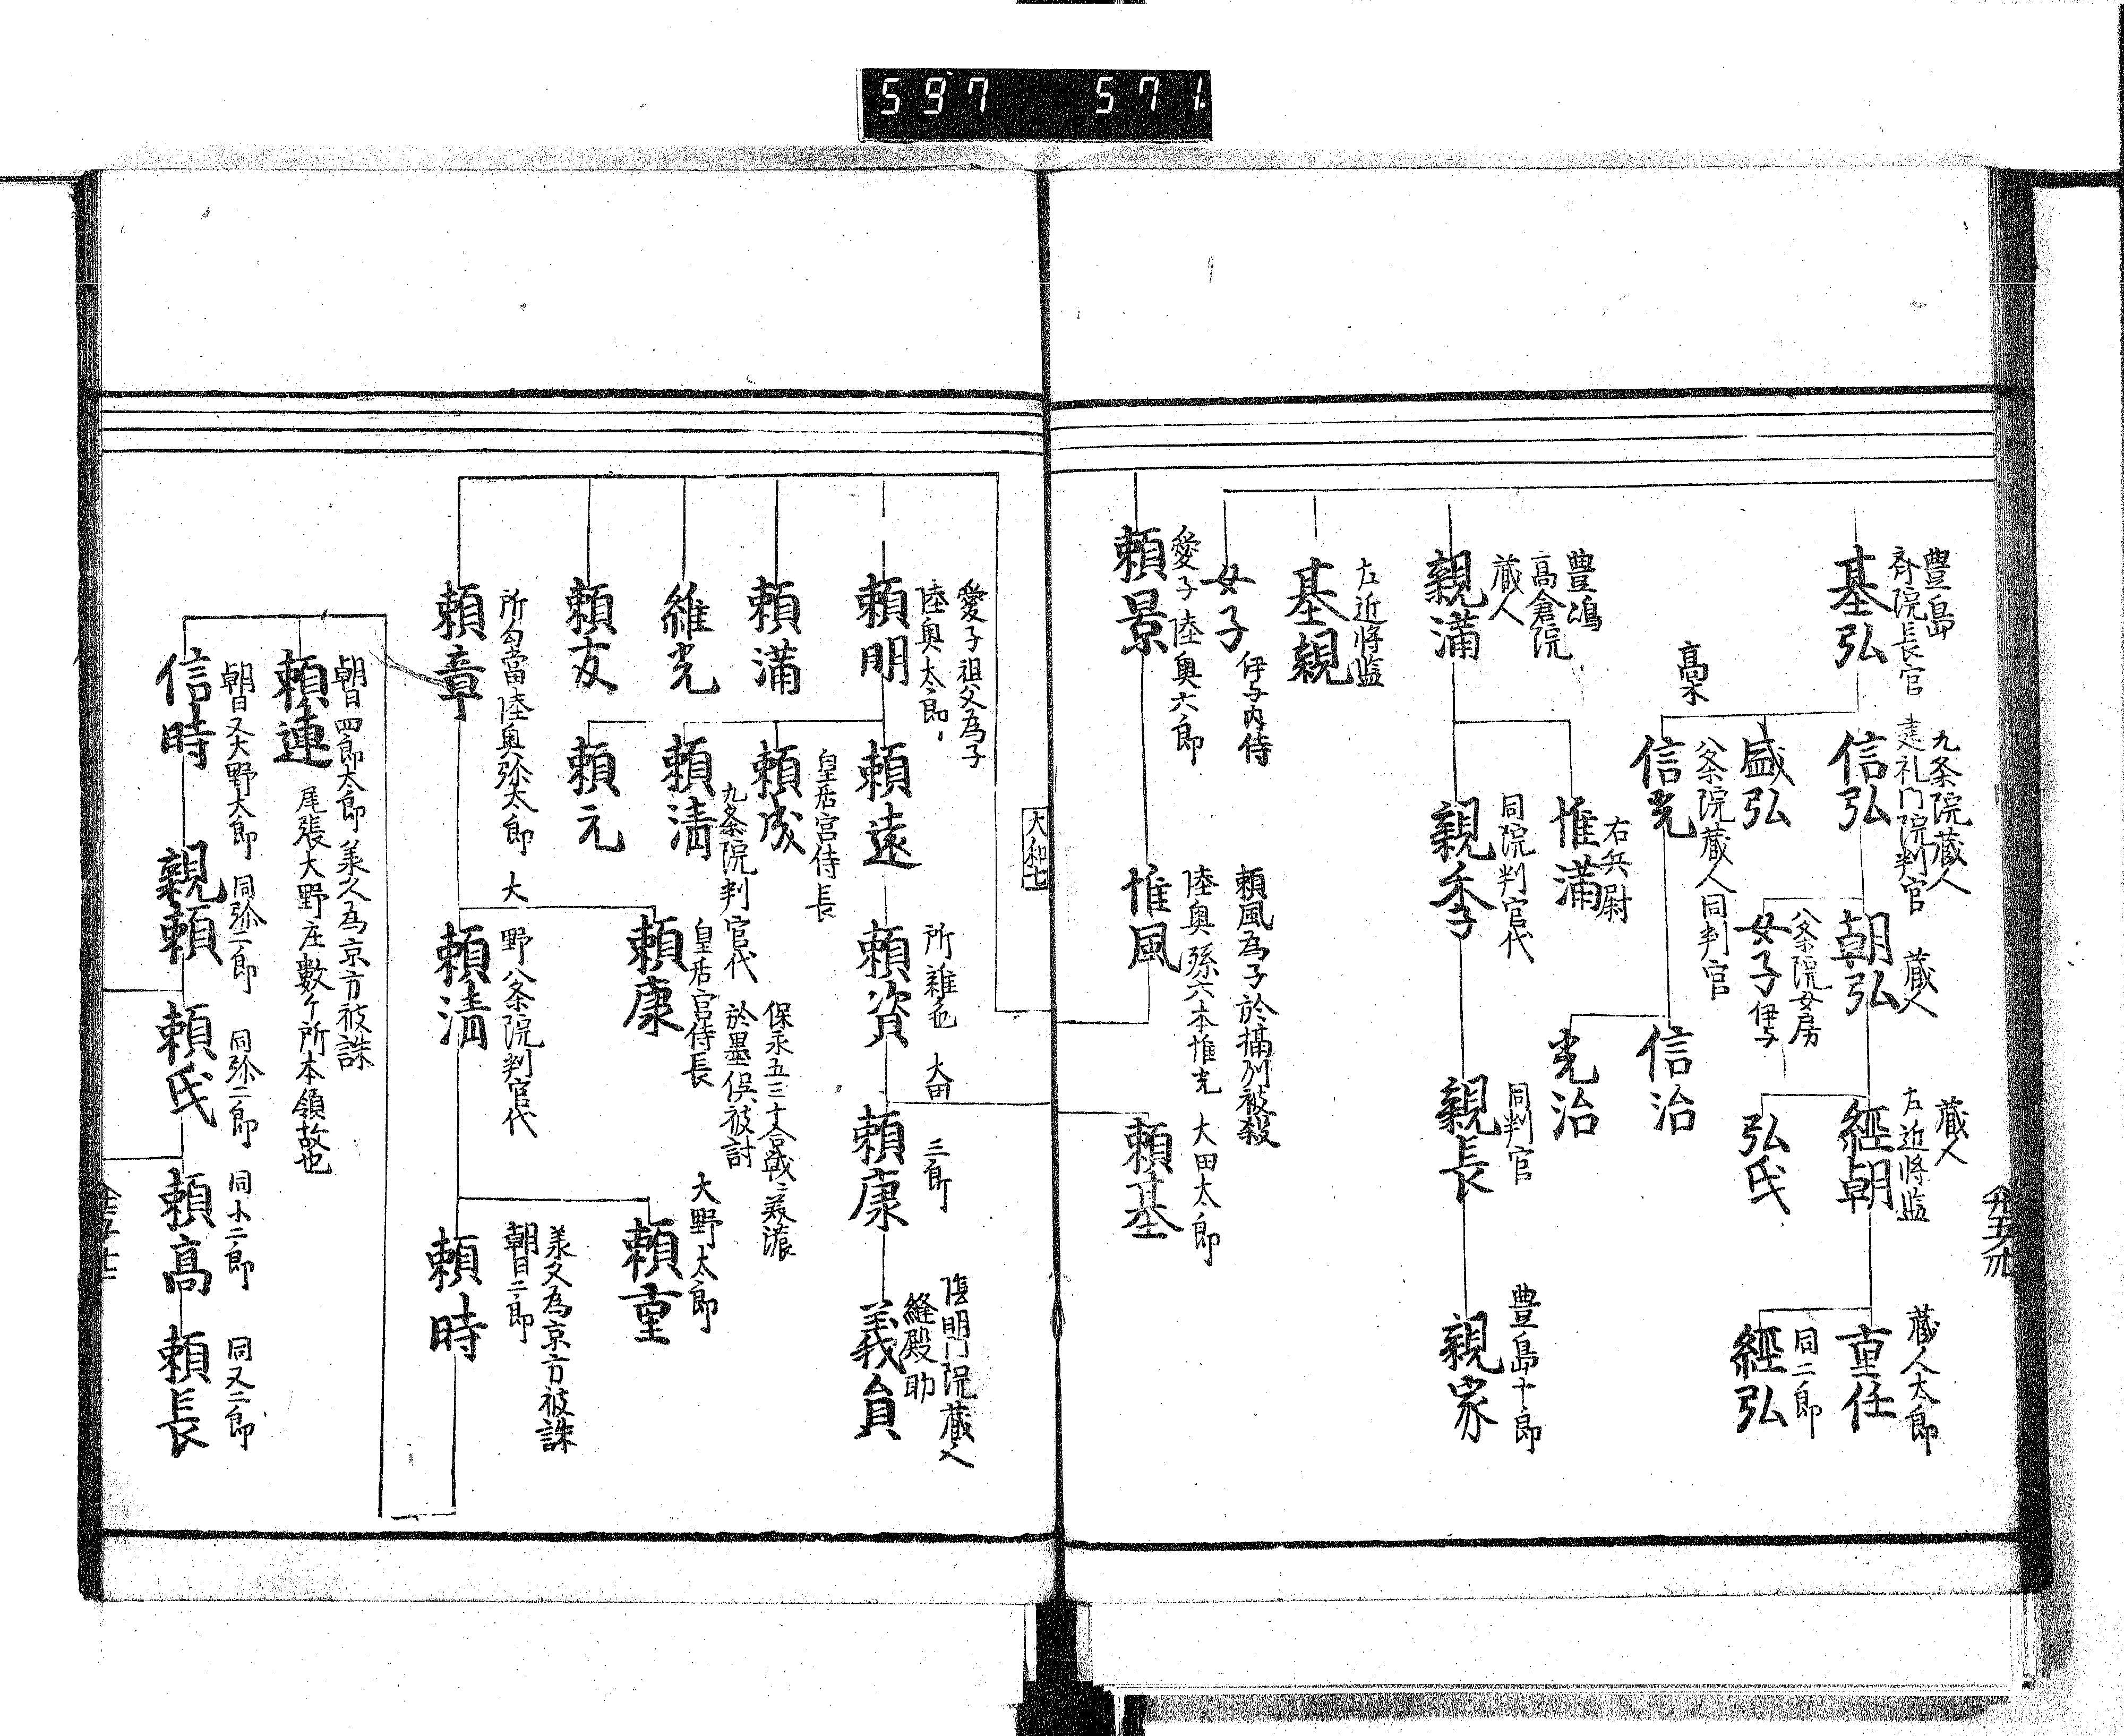 597 571
豊島
斉院長官
基弘
九条院蔵人
建礼門院判官
信弘
蔵人
朝弘
蔵人
左近将监
經朝
蔵人太郎
重任
盛弘
八条院女房
女子 伊与
弘氏
同二郎
經弘
髙木
八条院蔵人同判官
信光
信治
光治
豊嶋
髙倉院
蔵人
親満
右兵尉
惟満
同院判官代
親季
同判官
親長
豊島十郎
親家
左近将监
基親
女子 伊与内侍
愛子 陸奥六郎
頼景
頼風為子於摂州被殺
陸奥孫六本惟光
惟風
大田太郎
頼基
大和七
愛子祖父為子
陸奥太郎
頼明
頼遠
所雑色
頼資
大田
三郎
頼康
陰明門院蔵人
縫殿助
義員
頼満
皇后宮侍長
頼成
維光
九条院判官代
頼清
頼友
頼元
所勾當陸奥弥太郎
頼章
保永五三十合戦美濃
於墨俣被討
皇后宮侍長
頼康
大野太郎
頼重
大野八条院判官代
頼清
美久為京方被誅
朝日二郎
頼時
朝日四郎太郎 美久為京方被誅
尾張大野庄數ケ所本領故也
頼連
朝日又大野太郎
信時
同弥一郎
親頼
同弥二郎
頼氏
同小二郎
頼髙
同又二郎
頼長